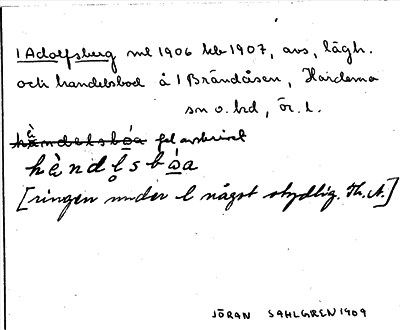 1 Adolfsberg ml 1906 hb 1907, avs, lägh.
och handelsbod å 1 Brändåsen, Hardemo
sn o. hd, ör. l.
hàndelsbóa fel avskrivet
hàndl̥sbóa
[ringen under l något otydlig. Th. A.]
JÖRAN SAHLGREN 1909